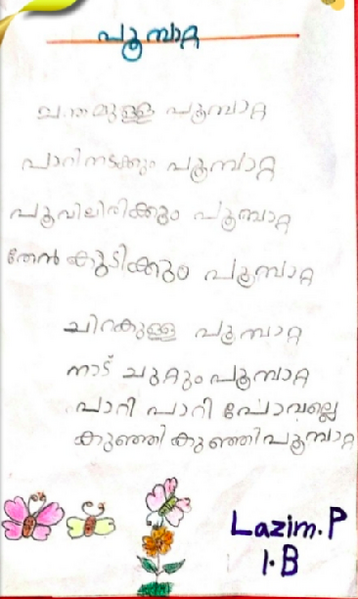 പൂമ്പാറ്റ
ചന്തമുള്ള പൂമ്പാറ്റ
പാറിനടക്കും പൂമ്പാറ്റ
പൂവിലിരിക്കും പൂമ്പാറ്റ
തേൻ കുടിക്കും പൂമ്പാറ്റ
ചിറകുള്ള പൂമ്പാറ്റ
നാട് ചുറ്റും പൂമ്പാറ്റ
പാറി പാറി പോവല്ലെ
കുഞ്ഞി കുഞ്ഞി പൂമ്പാറ്റ
Lazim.P
1.B